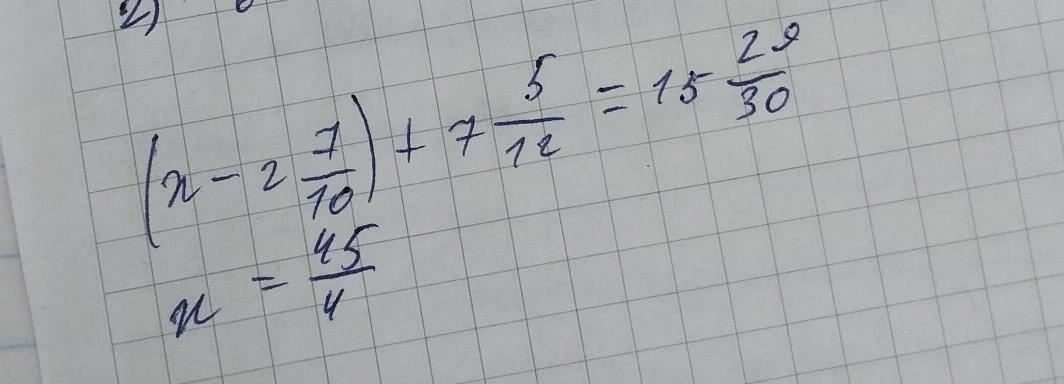 2)
(x - 2 7/10) + 7 5/12 = 15 29/30
x = 45/4